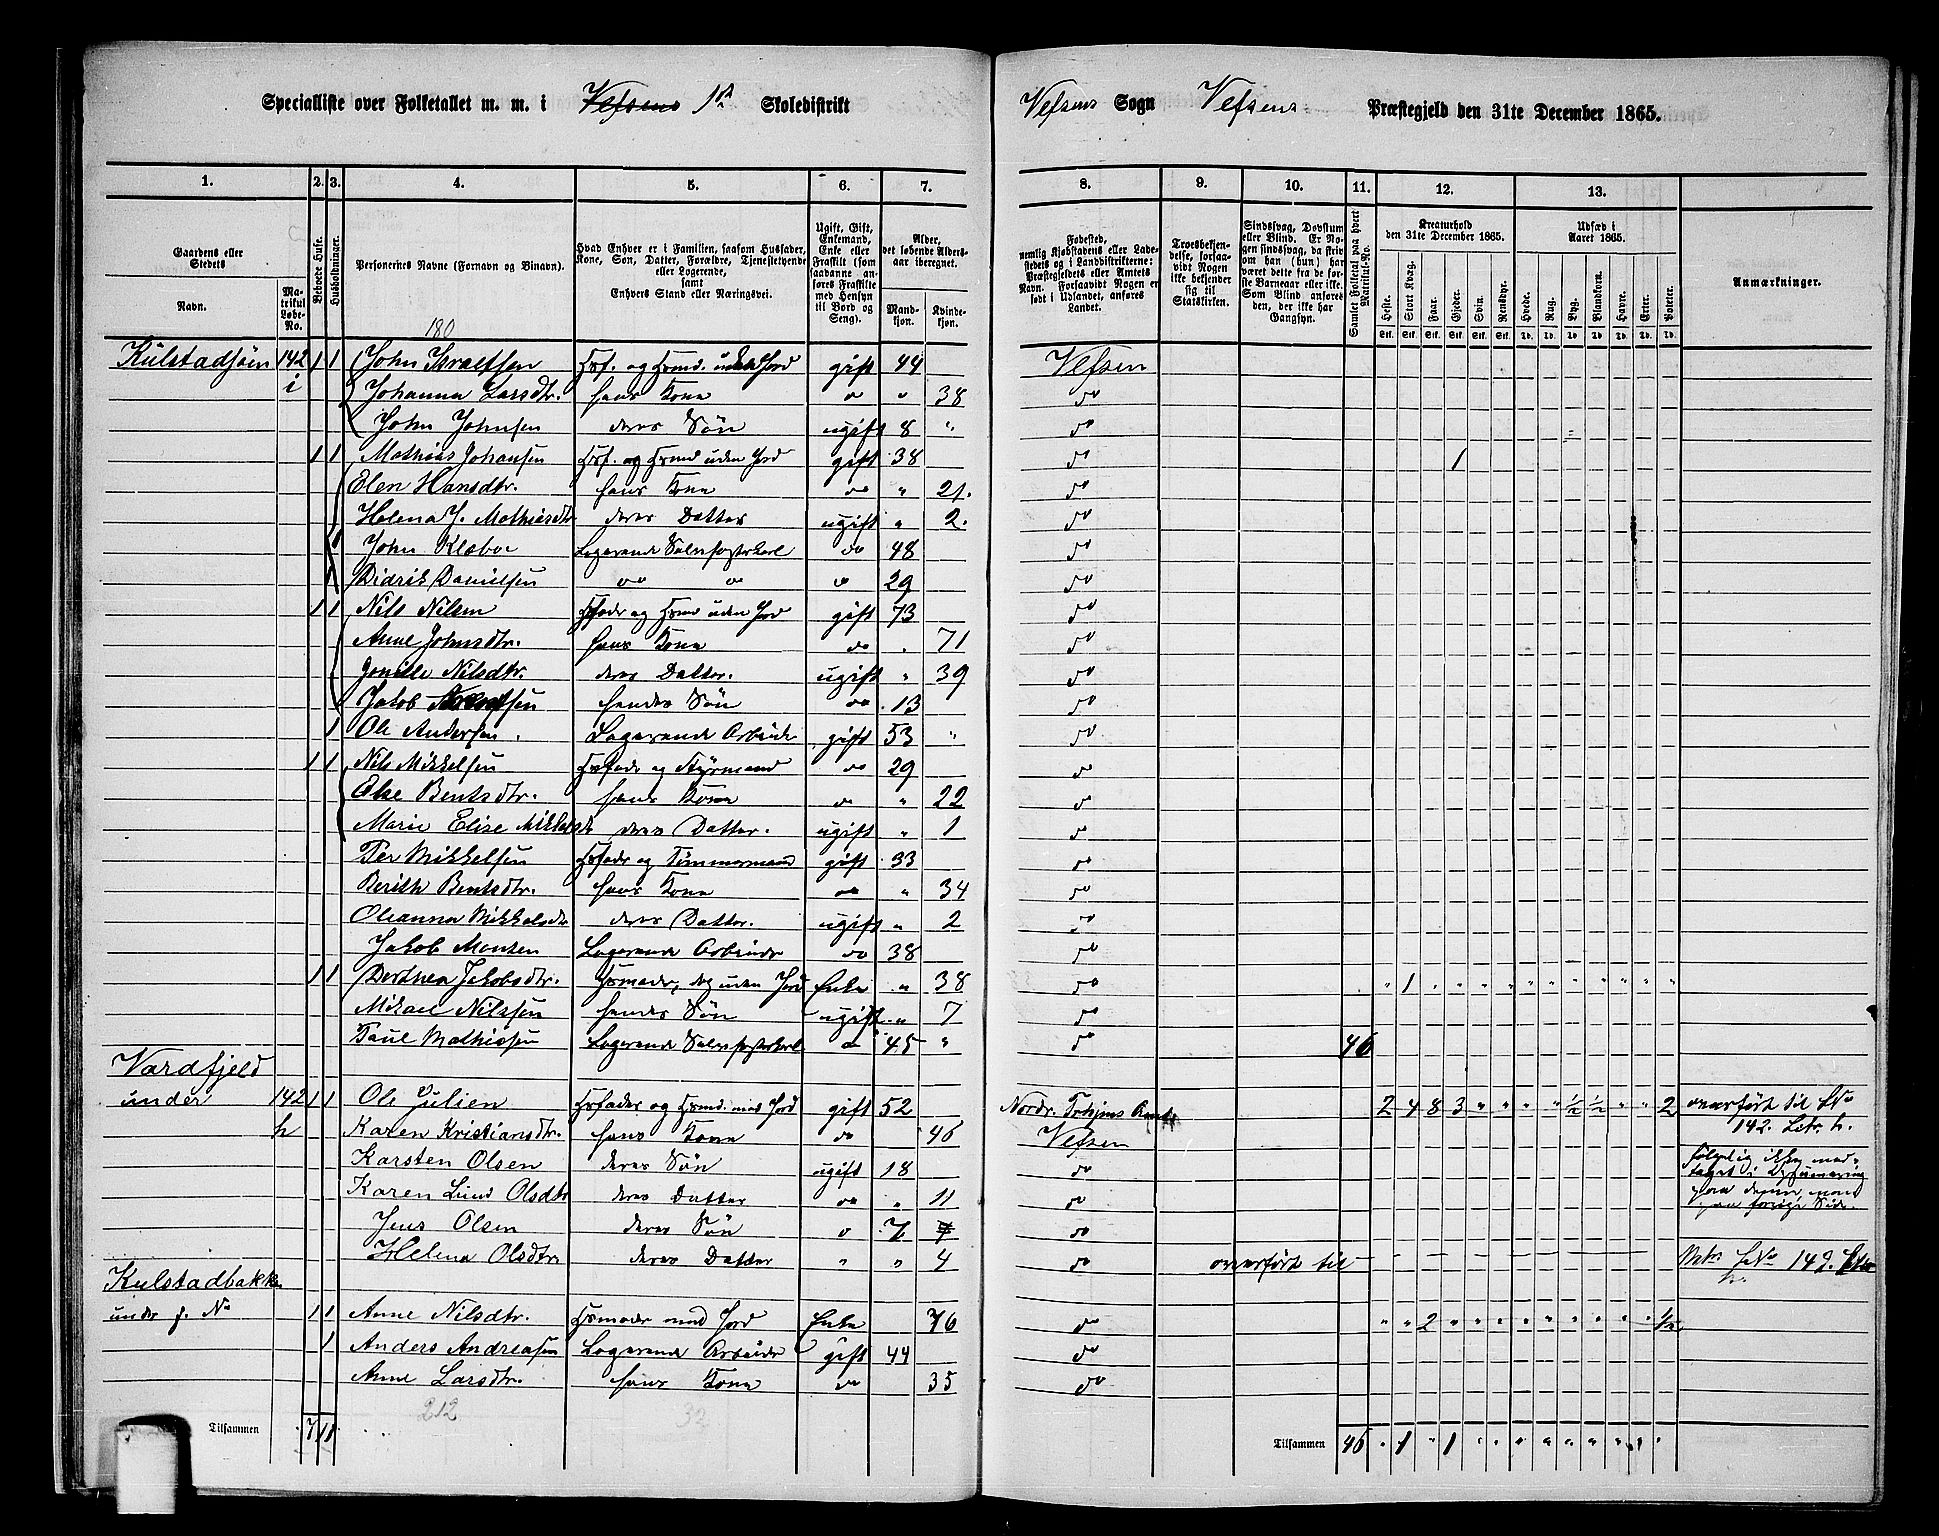 Specialliste over Folketallet m. m. i Vefsens 1ste Skoledistrikt Vefsens Sogn Vefsens Præstegjeld den 31te December 1865.
1. 2. 3. 4. 5. 6. 7. 8. 9. 10. 11. 12. 13.
Gaardens eller Stedets
Navn.
Matrikul Løbe-No.
Beboede Huse.
Husholdninger.
Personernes Navne (Fornavn og Binavn).
Hvad Enhver er i Familien, saasom Husfader, Kone, Søn, Datter, Forældre, Tjenestetyende eller Logerende, samt Enhvers Stand eller Næringsvei.
Ugift, Gift, Enkemand, Enke eller Fraskilt (som saadanne anføres Fraskilte med Hensyn til Bord og Seng).
Alder, det løbende Aldersaar iberegnet.
Mandkjøn.
Kvindekjøn.
Fødested, nemlig Kjøbstadens eller Ladestedets og i Landdistrikterne: Præstegjeldets eller Amtets Navn. Forsaavidt Nogen er født i Udlandet, anføres Landet.
Troesbekjendelse, forsaavidt Nogen ikke bekjender sig til Statskirken.
Sindssvag, Døvstum eller Blind. Er Nogen sindssvag, da skrives om han (hun) har været dette fra de første Barneaar eller ikke. Som Blind anføres den, der ikke har Gangsyn.
Samlet Folketal paa hvert Matrikul-No.
Kreaturhold den 31te December 1865.
Heste. Stort Kvæg. Faar. Gjeder. Svin. Rensdyr.
Udsæd i Aaret 1865.
Hvede. Rug. Byg. Blandkorn. Havre. Erter. Poteter.
Stk. Stk. Stk. Stk. Stk. Stk. Td. Td. Td. Td. Td. Td. Td.
Anmærkninger.
180
Kulstadsjøen 142 1 1 John Israelsen Hsf. og Hsmd. uden Jord gift 44 Vefsen
i Johanna Larsdtr. hans Kone do " 38 do
John Johnsen deres Søn ugift 8 " do
1 1 Mathias Johansen Hsf. og Hsmd uden Jord gift 38 do 1
Elen Hansdtr. hans Kone do " 21. do
Helena J. Mathiasdtr deres Datter ugift " 2. do
1 John Klæboe Logerende do 48 do
1 Didrik Danielsen do do do 29 do
1 1 Nils Nilsen Hsfader og Hsmd uden Jord gift 73 do
Anne Johnsdtr. hans Kone do . 71 do
Nilsdtr. deres Datter. ugift " 39 do
Jakob hendes Søn do 13 do
1 Ole Andersen. Logerende Arbeider gift 53 " do
1 1 Nils Mikkelsen Hsfader og Styrmand do 29 do
Bentsdtr. hans Kone do " 22 do
Marie Elise Mikkelsdt deres Datter. ugift " 1 do
Per Mikkelsen Hsfader og Tømmermand gift 33 do
Berith Bentsdtr. hans Kone do " 34 do
Oleanna Mikkelsdtr deres Datter. ugift " 2 do
Jakob Monsen Logerende Arbeider do 38 do
1 1 Dorthea Jakobsdtr. Hsmoder, uden Jord Enke " 38 do " 1 " " " " " " " " " " "
Mikael Nilssen hendes Søn ugift " 7 do
Paul Mathissen Logerende do 45 " do 46
Vardfjeld
under 142 1 1 Ole Julien Hsfader og Hsmd. med Jord gift 52 Nordr. Trhjms Amt 2 4 8 3 " " " " ½ ½ " " 2 overført til LNo
h Karen Kristiansdtr. hans Kone do 46 Vefsen 142. Litr. h.
Karsten Olsen deres Søn ugift 18 do følgelig ikke med-
Karen Lund Olsdtr deres Datter do " 11 do
Jens Olsen deres Søn do 7 7 do
Helena Olsdtr. deres Datter " " 4 do overført til Mtr. LNo 142. Litr
h.
Kulstadbakken
under f. No 1 1 Anne Nilsdtr. Hsmoder med Jord Enke 76 do " " 2 " " " " " " " " " ½
1 Anders Andreasen Logerende Arbeider gift 44 do
Anne Larsdtr. hans Kone do 35 do
212 32
Tilsammen 7 11 Tilsammen 46 " 1 " 1 " " " " " " " " "